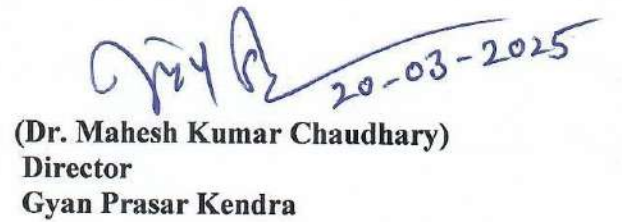 20-03-2025
(Dr. Mahesh Kumar Chaudhary)
Director
Gyan Prasar Kendra